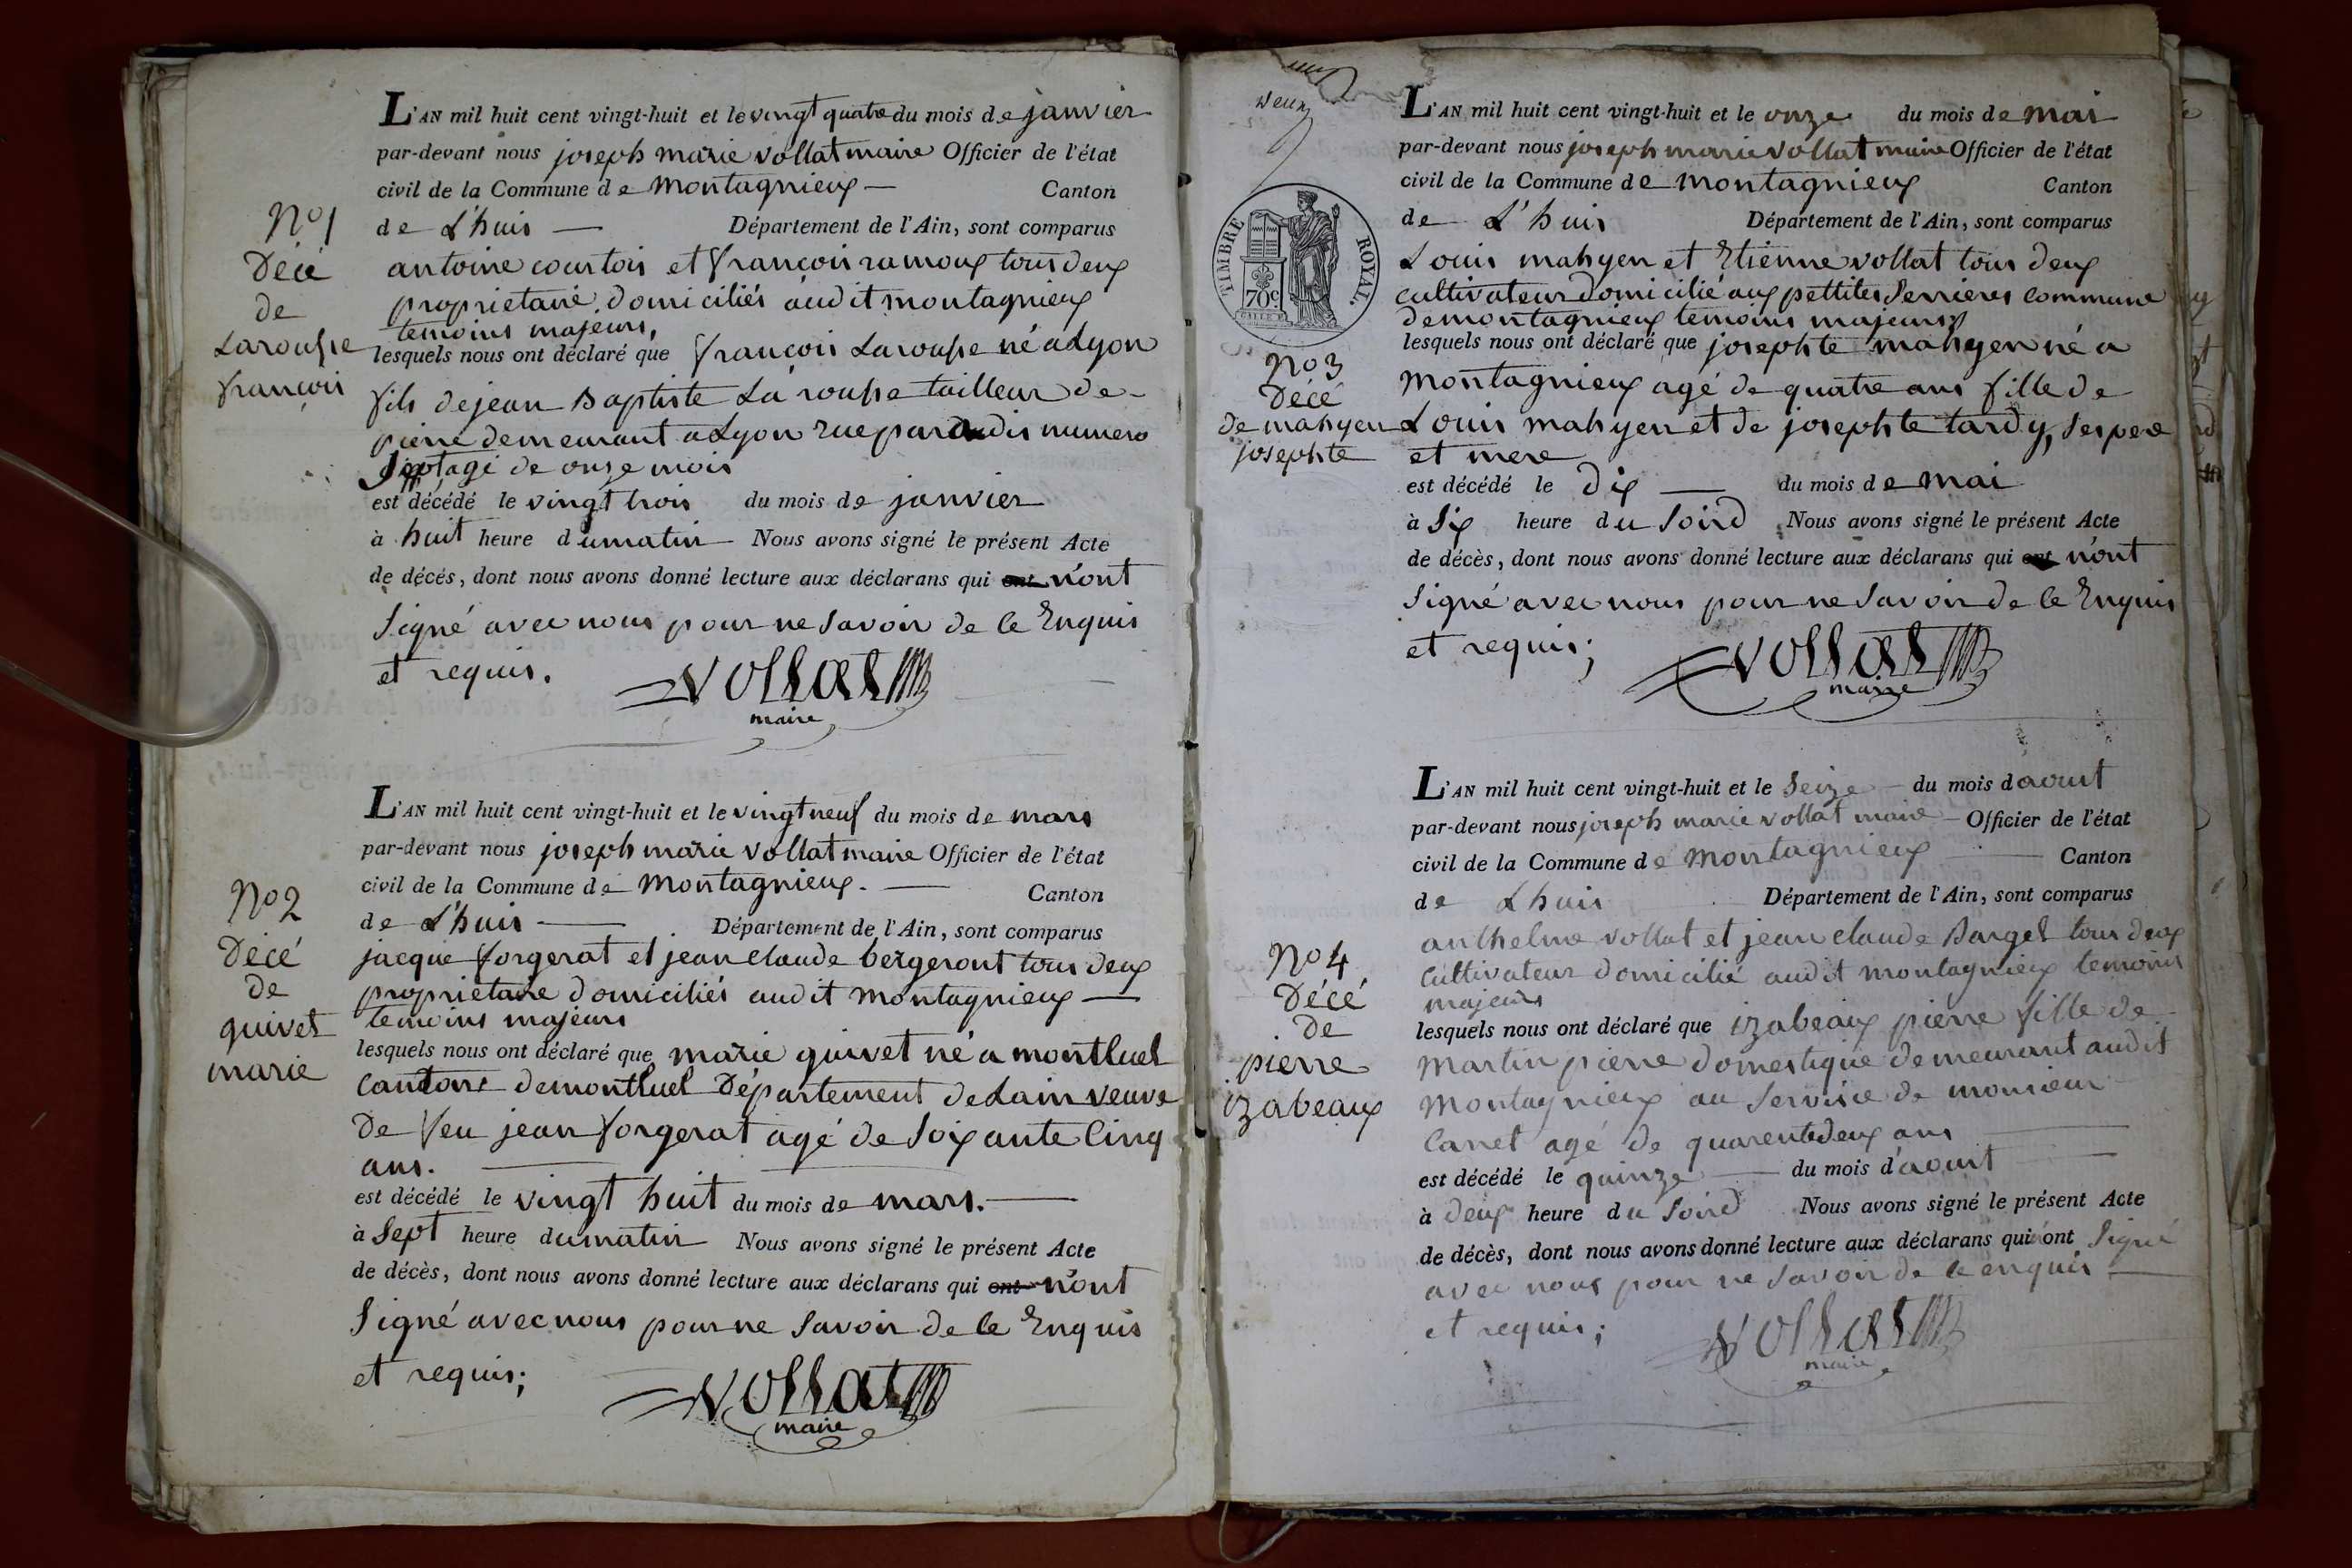 L'AN mil huit cent vingt-huit et le vingt quatre du mois de janvier
par-devant nous joseph marie vollat maire Officier de l'état
civil de la Commune de montagnieux — Canton
de L'huis — Département de l'Ain, sont comparus
antoine courtois et françois ramoux tous deux
proprietaire domiciliés audit montagnieux
temoins majeurs,
lesquels nous ont déclaré que françois Larousse né a Lyon
fils de jean Baptiste La rousse tailleur de
pierre demeurant a Lyon rue paradis numero
Sept agé de onze mois
est décédé le vingt trois du mois de janvier
à huit heure du matin — Nous avons signé le présent Acte
de décès, dont nous avons donné lecture aux déclarans qui ont n'ont
Signé avec nous pour ne Savoir de ce Enquis
et requis.
vollat
maire
No 1
Décé
de
Larousse
françois
L'AN mil huit cent vingt-huit et le vingt neuf du mois de mars
par-devant nous joseph marie vollat maire Officier de l'état
civil de la Commune de montagnieux. — Canton
de L'huis — Département de l'Ain, sont comparus
jacque forgerat et jean claude bergeront tous deux
proprietaire domiciliés audit montagnieux —
temoins majeurs
lesquels nous ont déclaré que marie quivet né a montluel
Cantont de montluel Département de Lain veuve
De feu jean forgerat agé de Soixante Cinq
ans. —
est décédé le vingt huit du mois de mars. —
à Sept heure du matin Nous avons signé le présent Acte
de décès, dont nous avons donné lecture aux déclarans qui ont n'ont
Signé avec nous pour ne Savoir de ce Enquis
et requis;
vollat
maire
No 2
Décé
de
quivet
marie
L'AN mil huit cent vingt-huit et le onze du mois de mai
par-devant nous joseph marie vollat maire Officier de l'état
civil de la Commune de montagnieux Canton
de L'huis Département de l'Ain, sont comparus
Louis mahyen et Etienne vollat tous deux
cultivateur domicilié aux pettites Serrieres commune
de montagnieux temoins majeurs
lesquels nous ont déclaré que josephte mahyen né a
montagnieux agé de quatre ans fille de
Louis mahyen et de josephte tardy, Ses pere
et mere
est décédé le dix — du mois de mai
à Six heure du Soird Nous avons signé le présent Acte
de décès, dont nous avons donné lecture aux déclarans qui ont n'ont
Signé avec nous pour ne Savoir de ce Enquis
et requis;
vollat
maire
TIMBRE ROYAL.
70c
No 3
Décé
de mahyen
josephte
L'AN mil huit cent vingt-huit et le Seize — du mois d'aout
par-devant nous joseph marie vollat maire — Officier de l'état
civil de la Commune de montagnieux — Canton
de Lhuis Département de l'Ain, sont comparus
anthelme vollat et jean claude Barget tous deux
Cultivateur domicilié audit montagnieux temoins
majeurs
lesquels nous ont déclaré que izabeaux pierre fille de
Martin pierre domestique demeurant audit
Montagnieux au Service de monsieur
Carret agé de quarente deux ans —
est décédé le quinze — du mois d'aout
à deux heure du Soird Nous avons signé le présent Acte
de décès, dont nous avons donné lecture aux déclarans qui n'ont Signé
avec nous pour ne Savoir de ce enquis —
et requis;
vollat
maire
No 4
Décé
de
pierre
izabeaux